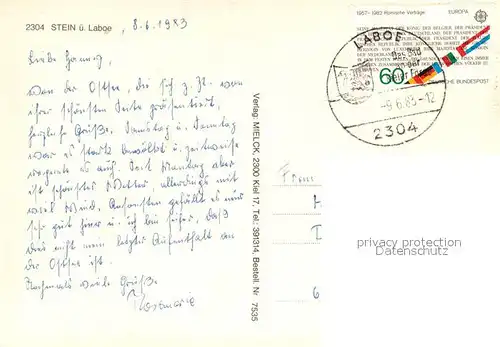 2304 STEIN ü. Laboe 8.6.1983
Liebe
von der Ostsee, die sich z. Zt. von
ihrer schönsten Seite präsentiert,
herzliche Grüße. Samstag u. Sonntag
war es stark bewölkt u. zeitweise
regnete es auch. Seit Montag aber
ist schönstes Wetter, allerdings mit
viel Wind. Ansonsten gefällt es uns
sehr gut hier u. ich bin sicher, daß
dies nicht mein letzter Aufenthalt an
der Ostsee ist.
Nochmals viele Grüße
Rosemarie
Verlag: MIELCK, 2300 Kiel 17, Tel.: 391314, Bestell. Nr 7535
1957-1982 Römische Verträge EUROPA
60
DEUTSCHE BUNDESPOST
LABOE
Das Bad
der
-9.6.83-12
2304
privacy protection
Datenschutz